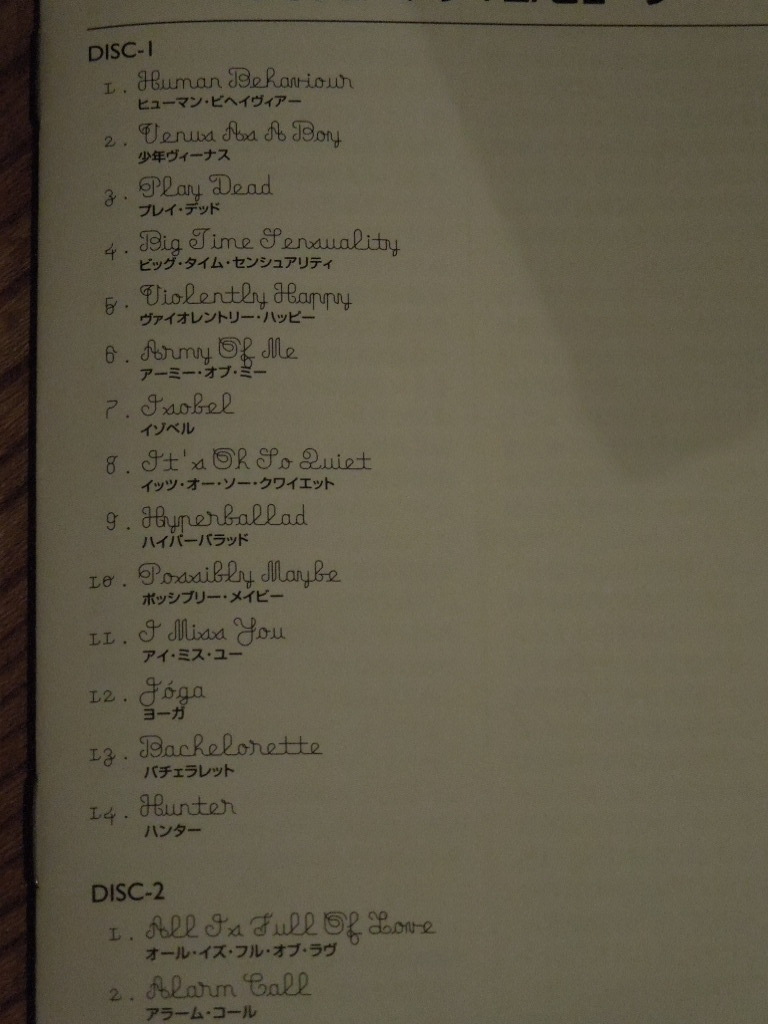 DISC-1
1. Human Behaviour
ヒューマン・ビヘイヴィアー
2. Venus As A Boy
少年ヴィーナス
3. Play Dead
プレイ・デッド
4. Big Time Sensuality
ビッグ・タイム・センシュアリティ
5. Violently Happy
ヴァイオレントリー・ハッピー
6. Army Of Me
アーミー・オブ・ミー
7. Isobel
イゾベル
8. It's Oh So Quiet
イッツ・オー・ソー・クワイエット
9. Hyperballad
ハイパーバラッド
10. Possibly Maybe
ポッシブリー・メイビー
11. I Miss You
アイ・ミス・ユー
12. Jóga
ヨーガ
13. Bachelorette
バチェラレット
14. Hunter
ハンター
DISC-2
1. All Is Full Of Love
オール・イズ・フル・オブ・ラヴ
2. Alarm Call
アラーム・コール